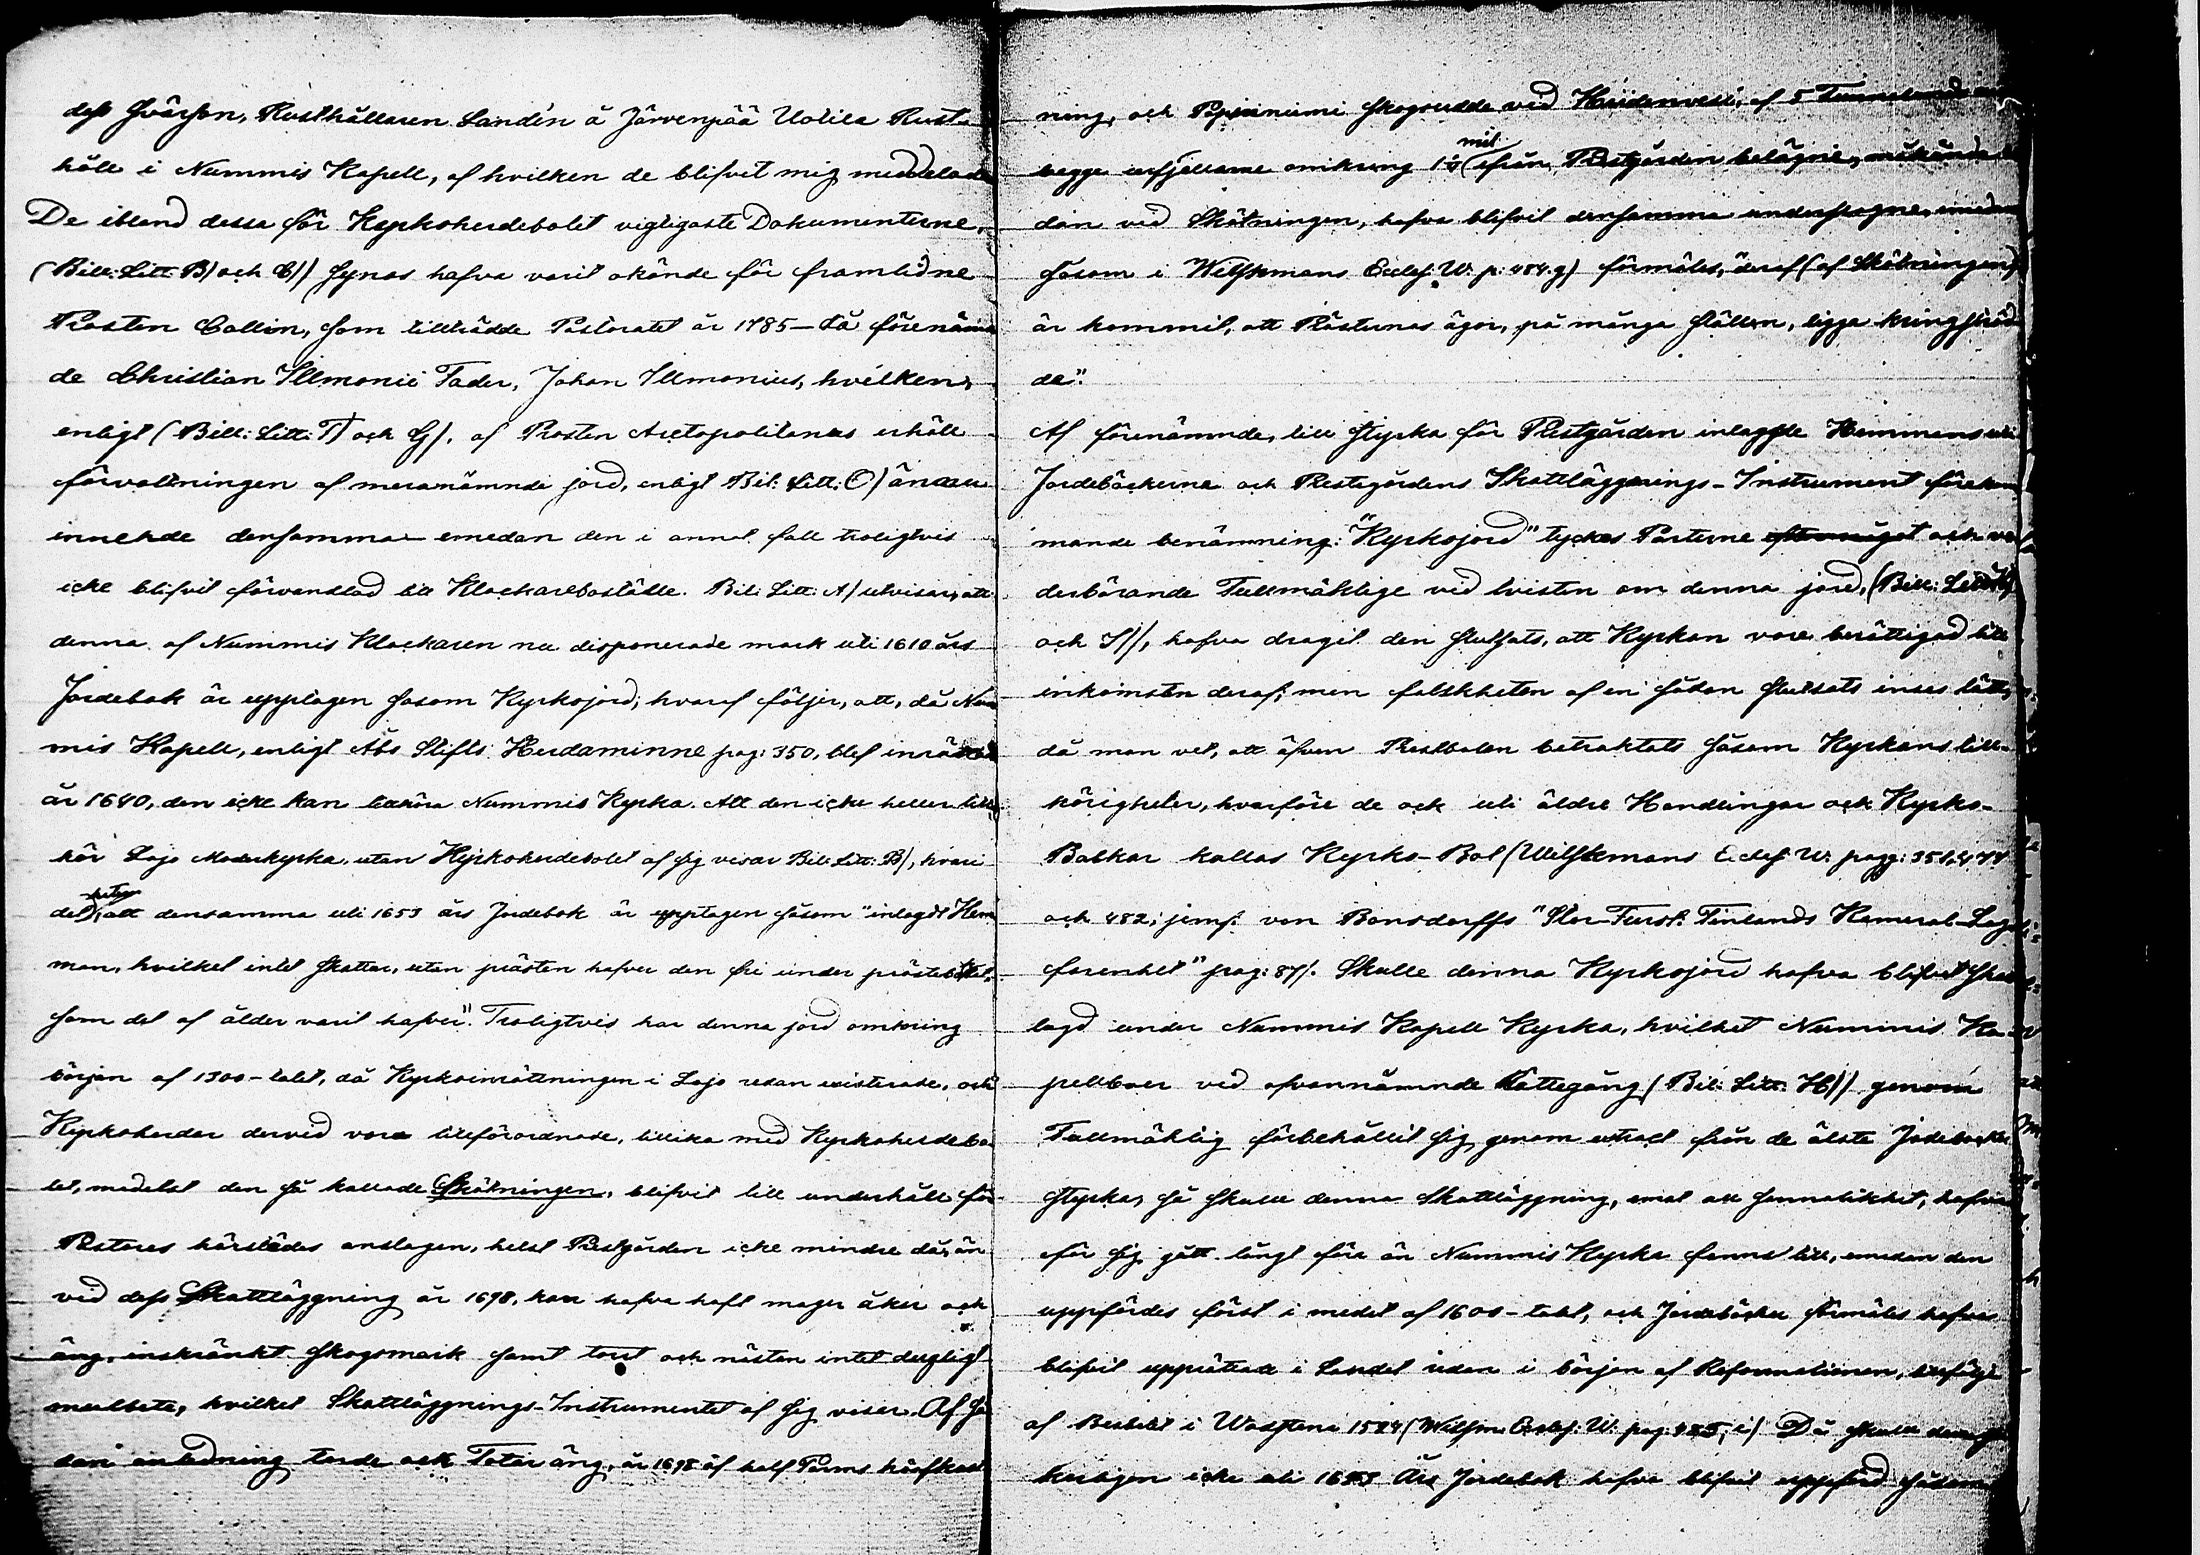 dess svärson, Rusthållaren Sandén å Järvenpää Uotila Rust-
håll i Nummis Kapell, af hvilken de blifvit mig meddelade
De ibland dessa för Kyrkoherdebolet vigtigaste Dokumenterne,
(Bill: Litt: B) och C)) synas hafva varit okände för framlidne
Prosten Collin, som tillträdde Pastoratet år 1785 – då förenämn
de Christian Illmonii Fader, Johan Illmonius, hvilken,
enligt (Bill: Litt: F) och G), af Prosten Arctopolitanus erhöll
förvaltningen af meranämnde jord, enligt Bil: Litt: O) ännu
innehade densamma emedan den i annat fall troligtvis
icke blifvit förvandlad till Klockareboställe. Bil: Litt: A) utvisar, att
denna af Nummis Klockaren nu disponerade mark uti 1610 års
Jordebok är upptagen såsom Kyrkojord; hvaraf följer, att, då Num
mis Kapell, enligt Åbo Stifts Herdaminne pag: 350, blef inrättad
år 1640, den icke kan tillhöra Nummis Kyrka. Att den icke heller till
hör Lojo Moderkyrka, utan Kyrkoherdebolet af sig visar Bil: Litt: B), hvari
det heter, att densamma uti 1653 års Jordebok är upptagen såsom "inlagdt Hem
man, hvilket intet skattar, utan prästen hafver den fri under prästebolet,
som det af ålder varit hafver". Troligtvis har denna jord omkring
början af 1300-talet, då Kyrkoinrättningen i Lojo redan existerade, och
Kyrkoherdar dervid voro tillförordnade, tillika med Kyrkoherdebo
let, medelst den så kallade Skötningen, blifvit till underhåll för
Pastores härstädes anslagen, helst Prestgården icke mindre då, än
vid dess Skattläggning år 1698, kan hafva haft mager åker och
äng, inskränkt skogsmark samt torrt och nästan intet dugligt
mulbete, hvilket Skattläggnings-Instrumentet af sig viser. Af så
dan anledning torde ock Totar äng, år 1698 af half Parms höafkast
ning, och Pipurniemi skogsudde vid Hiidenvesi, af 5 Tunneland
begge utfjellarne omkring 1½ mil ifrån Prestgården belägne,
dan vid Skötningen, hafva blifvit densamma underslagne, emedan
såsom i Wilskmans Eccles: W: p: 484. g) förmäles, "deraf (af Skötningen)
är kommit, att Prästernas ägor, på många ställen, ligga kringströd
de".
Af förenämnde, till styrka för Prestgården inlagde Hemmans uti
Jordeböckerne och Prestgårdens Skattläggnings-Instrument förekom
mande benämning: "Kyrkojord" tyckas Parterne och ve
derbörande Fullmäktige vid tvisten om denna jord, (Bill: Litt:
och I)), hafva dragit den slutsats, att Kyrkan vore berättigad till
inkomsten deraf; men falskheten af en sådan slutsats inses lätt,
då man vet, att äfven Prestbolen betraktats såsom Kyrkans till-
hörigheter, hvarföre de ock uti äldre Handlingar och Kyrko-
Balkar kallas Kyrko-Bol (Wilskmans Eccles: W: pagg: 351, 477
och 482; jemf: von Bonsdorffs "Stor-Furst: Finlands Kameral-Lag
farenhet" pag: 87). Skulle denna Kyrkojord hafva blifvit skatt
lagd under Nummis Kapell Kyrka, hvilket Nummis Ka-
pellboer vid ofvannämnde Rättegång (Bil: Litt: H)) genom
Fullmäktig förbehållit sig, genom utdrag från de älste Jordeböcker
styrka, så skulle denna Skattläggning, emot all sannolikhet, hafva
för sig gått långt före än Nummis Kyrka fanns till, emedan den
uppfördes först i medlet af 1600-talet, och Jordeböcker förmäles hafva
blifvit upprättade i Landet redan i början af Reformationen, tillfölje
af Beslutet i Wadstena 1524 (Wilskm: Eccles: W: pag: 485, i) Då skulle
icke uti 1653 Års Jordebok hafva blifvit uppförd såsom